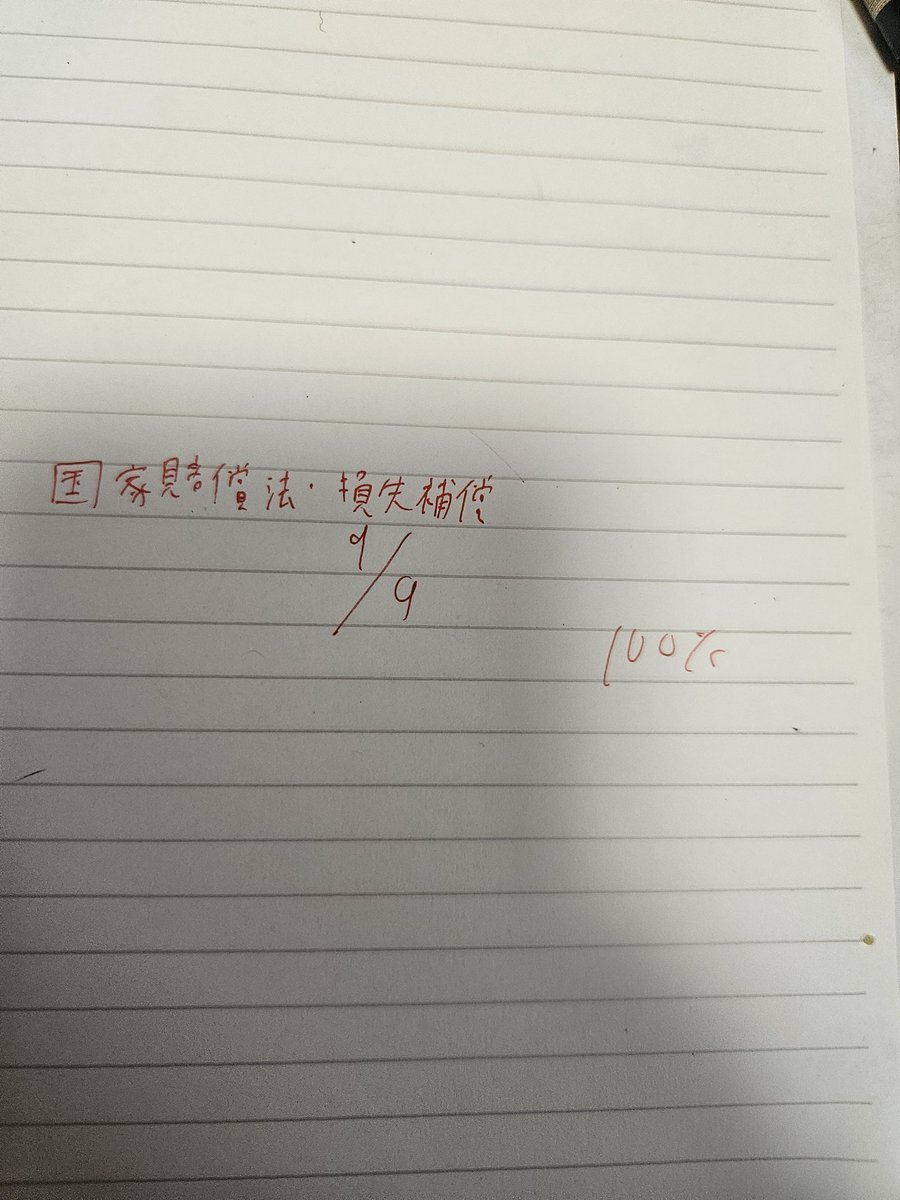 国家賠償法・損失補償
9/9
100%